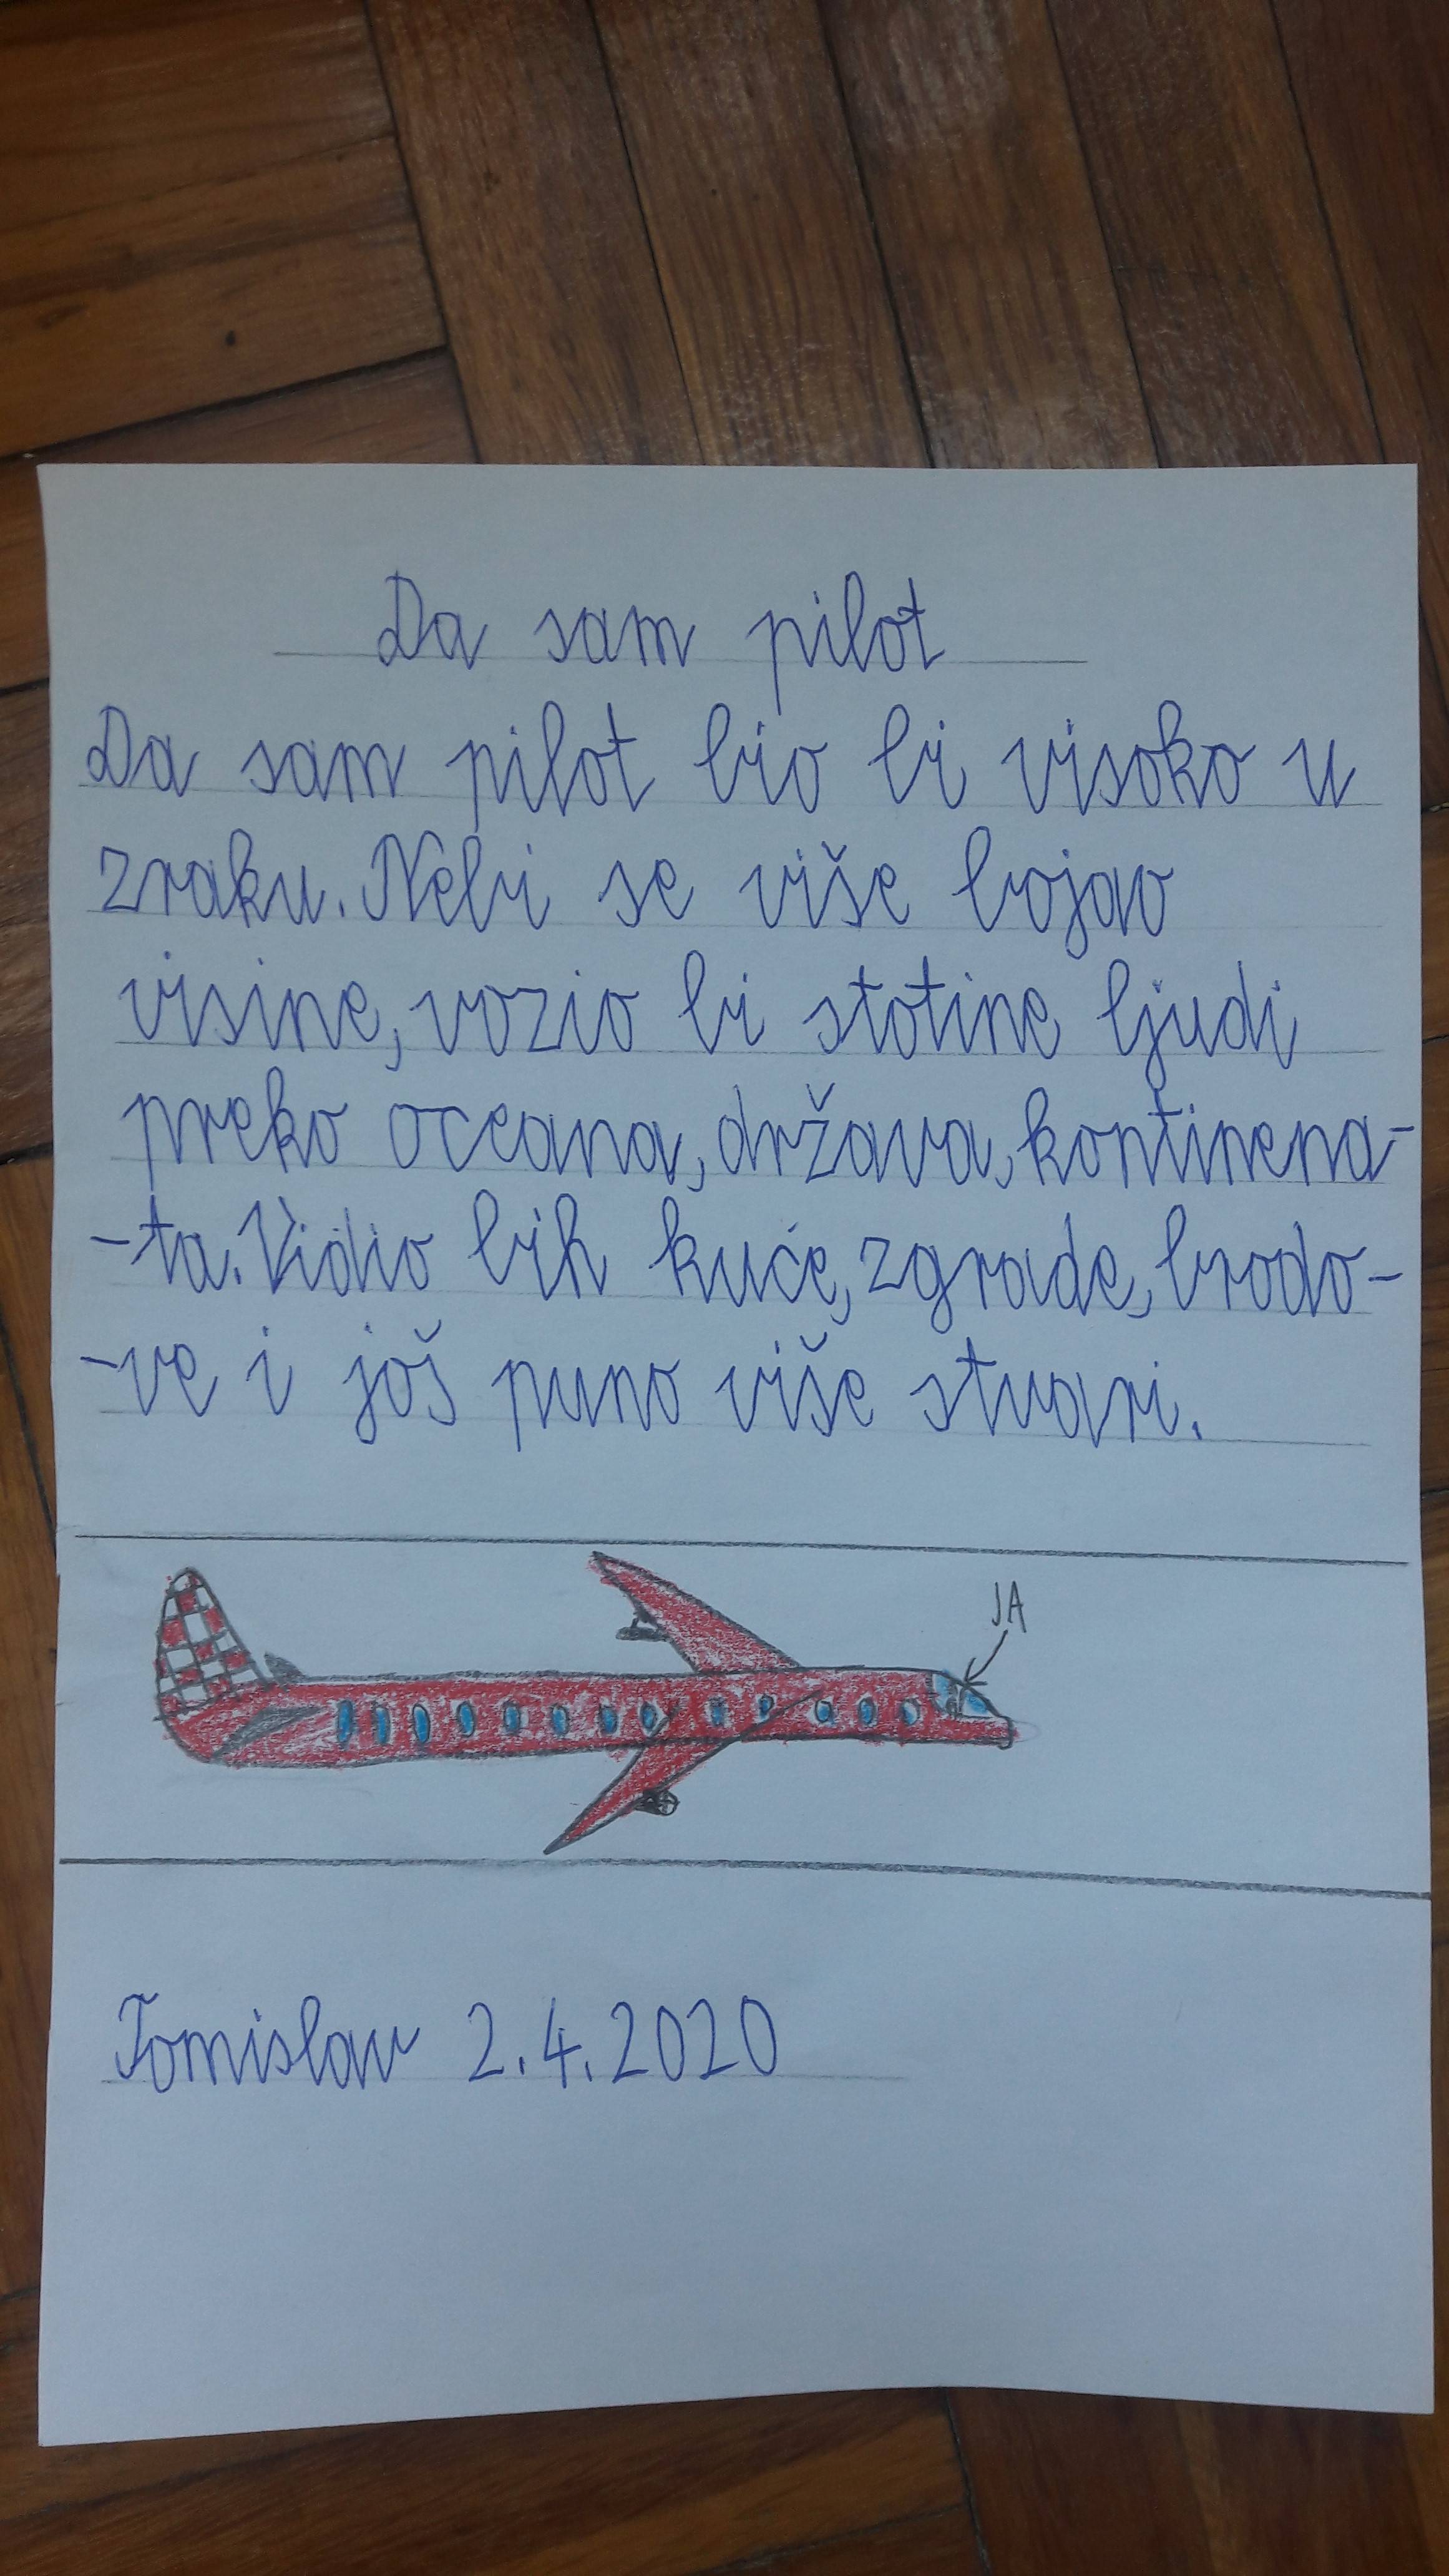 Da sam pilot
Da sam pilot bio bi visoko u
zraku. Nebi se više bojao
visine, vozio bi stotine ljudi
preko oceana, država, kontinena-
-ta. Vidio bih kuće, zgrade, brodo-
-ve i još puno više stvari.
JA
Tomislav 2.4.2020